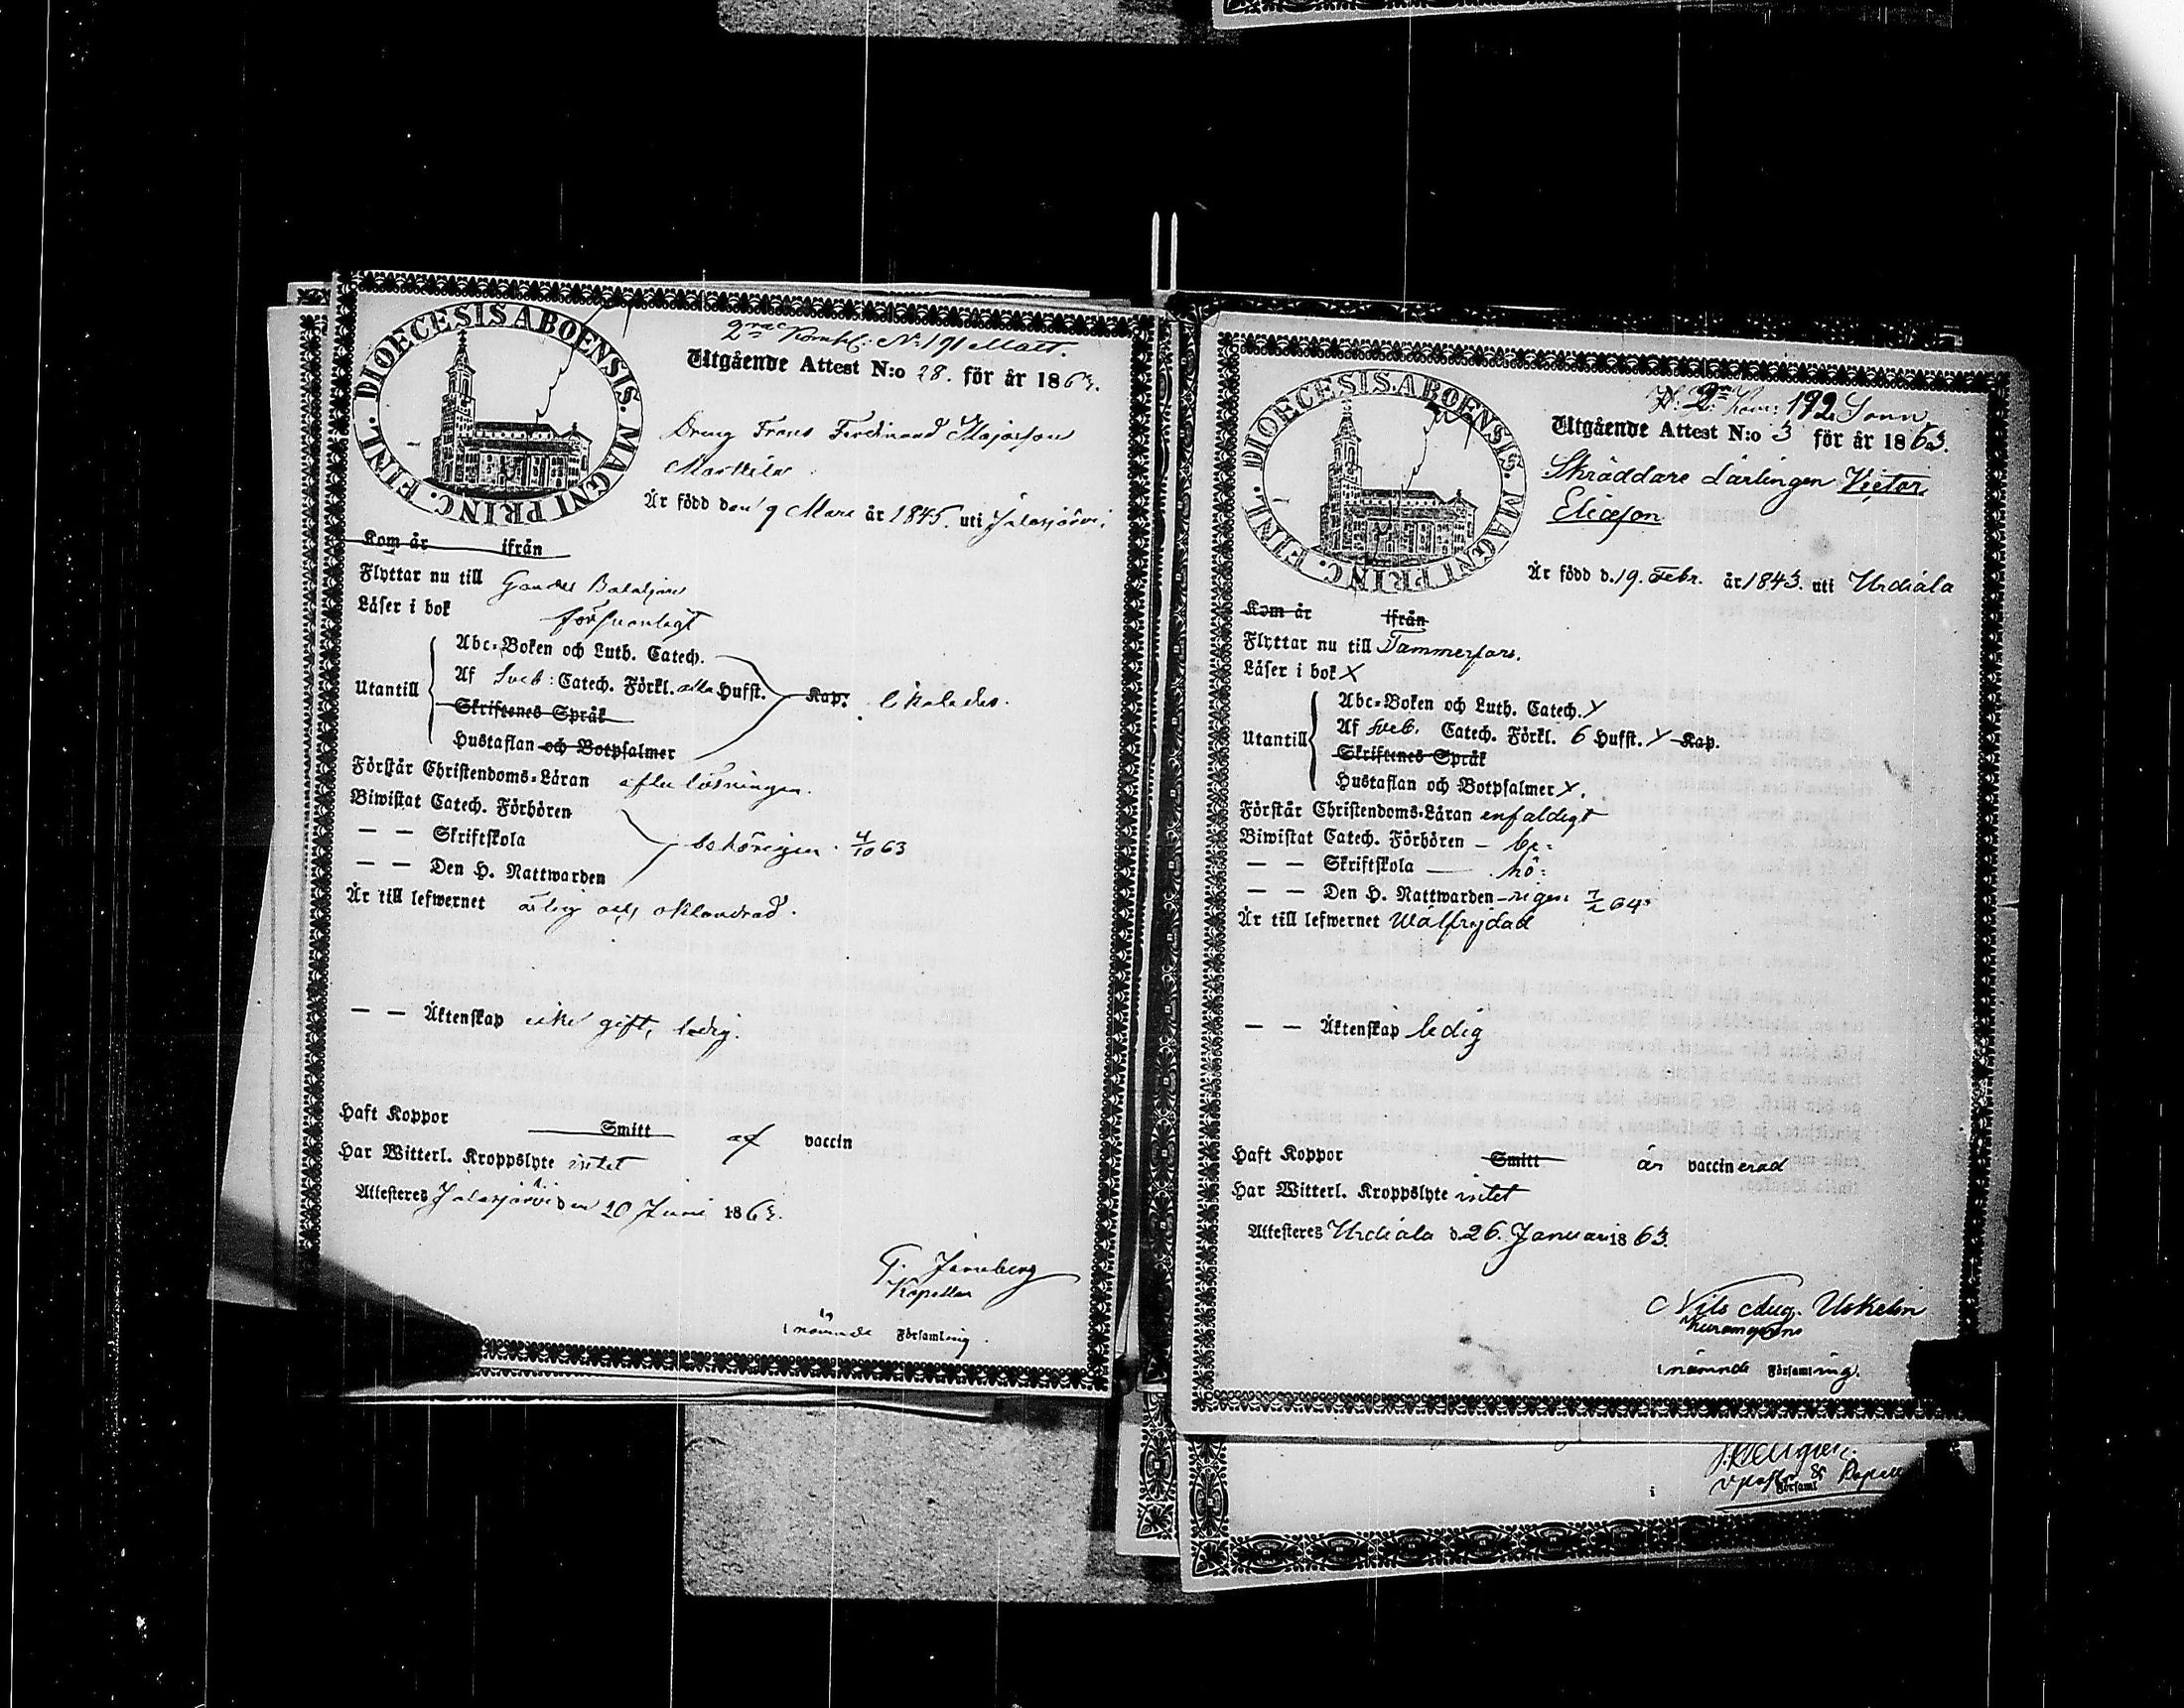 DIOECESIS ABOENSIS. MAGNI PRINC. FINL.
2ra Komp: No 191 Matt.
Utgående Attest N:o 28. för år 1863.
Dreng Frans Ferdinand Majasson
Markkila
Är född den 19 Mars år 1845. uti Jalasjärvi
Kom år ifrån
Flyttar nu till Gardes Bataljonen
Läser i bok försvarligt
Utantill
Abc-Boken och Luth. Catech.
Af Sveb: Catech. Förkl. alla Hufst. Kap: likaledes.
Skriftenes Språk
Hustaflan och Botpsalmer
Förstår Christendoms-Läran efter läsningen.
Biwistat Catech. Förhören
— — Skriftskola behörigen. 4/10 63
— — Den H. Nattwarden
Är till lefwernet ärlig och oklandrad.
— — Äktenskap icke gift, ledig.
Haft Koppor Smitt af vaccin
Har Witterl. Kroppslyte intet
Attesteres Jalasjärvi den 20 Juni 1863.
Kapellan
i nämnde Församling.
DIOECESIS ABOENSIS. MAGNI PRINC. FINL.
2ra Kom: 192 Sonn
Utgående Attest N:o 3 för år 1863.
Skräddare Lärlingen Victor
Ericsson
Är född d. 19. Febr. år 1843. uti Urdiala
Kom år ifrån
Flyttar nu till Tammerfors.
Läser i bok X
Utantill
Abc-Boken och Luth. Catech. X
Af Sveb. Catech. Förkl. 6 Hufst. X Kap.
Skriftenes Språk
Hustaflan och Botpsalmer X.
Förstår Christendoms-Läran enfaldigt
Biwistat Catech. Förhören – be=
— — Skriftskola — hö=
— — Den H. Nattwarden – rigen 7/2 64.
Är till lefwernet Wälfrejdad
— — Äktenskap ledig
Haft Koppor Smitt är vaccinerad
Har Witterl. Kroppslyte intet
Attesteres Urdiala d 26. Januari 1863.
Nils Aug. Uskelin
i nämnde Församling.
i Församl